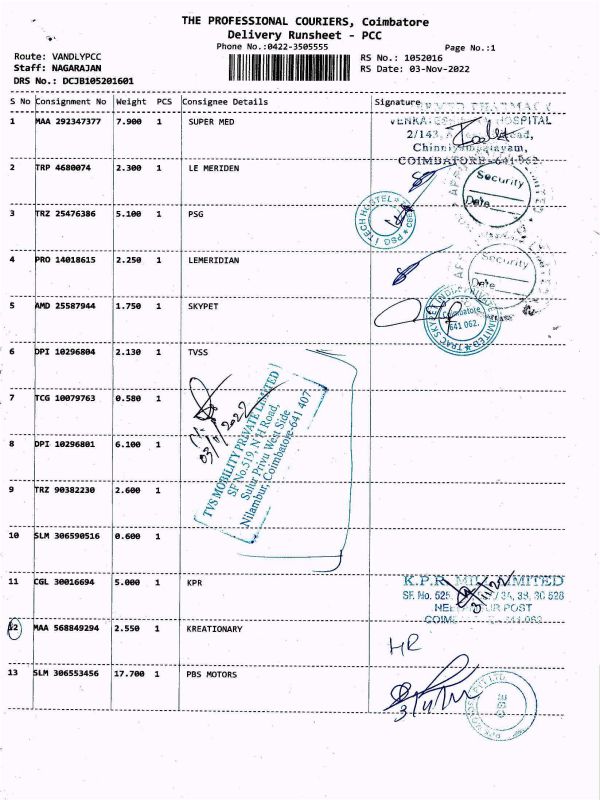 THE PROFESSIONAL COURIERS, Coimbatore
Delivery Runsheet - PCC
Phone No.:0422-3505555
Page No.:1
Route: VANDLYPCC
RS No.: 1052016
Staff: NAGARAJAN
RS Date: 03-Nov-2022
DRS No.: DCJB105201601
S No Consignment No Weight PCS Consignee Details Signature
1 MAA 292347377 7.900 1 SUPER MED
HOSPITAL
2/143,
COIMBATORE-641 062.
2 TRP 4680074 2.300 1 LE MERIDEN
Security
Date
3 TRZ 25476386 5.100 1 PSG
PSG ITECH HOSTEL
4 PRO 14018615 2.250 1 LEMERIDIAN
Security
Date
5 AMD 25587944 1.750 1 SKYPET
Coimbatore
641 062.
6 DPI 10296804 2.130 1 TVSS
7 TCG 10079763 0.580 1
03/11/2022
TVS MOBILITY PRIVATE LIMITED
SF No.519, N H Road,
Sulur Privu West Side
Nilambur, Coimbatore-641 407
8 DPI 10296801 6.100 1
9 TRZ 90382230 2.600 1
10 SLM 306590516 0.600 1
11 CGL 30016694 5.000 1 KPR
K.P.R. MILL LIMITED
SF. No. 525,
POST
12 MAA 568849294 2.550 1 KREATIONARY
HR
13 SLM 306553456 17.700 1 PBS MOTORS